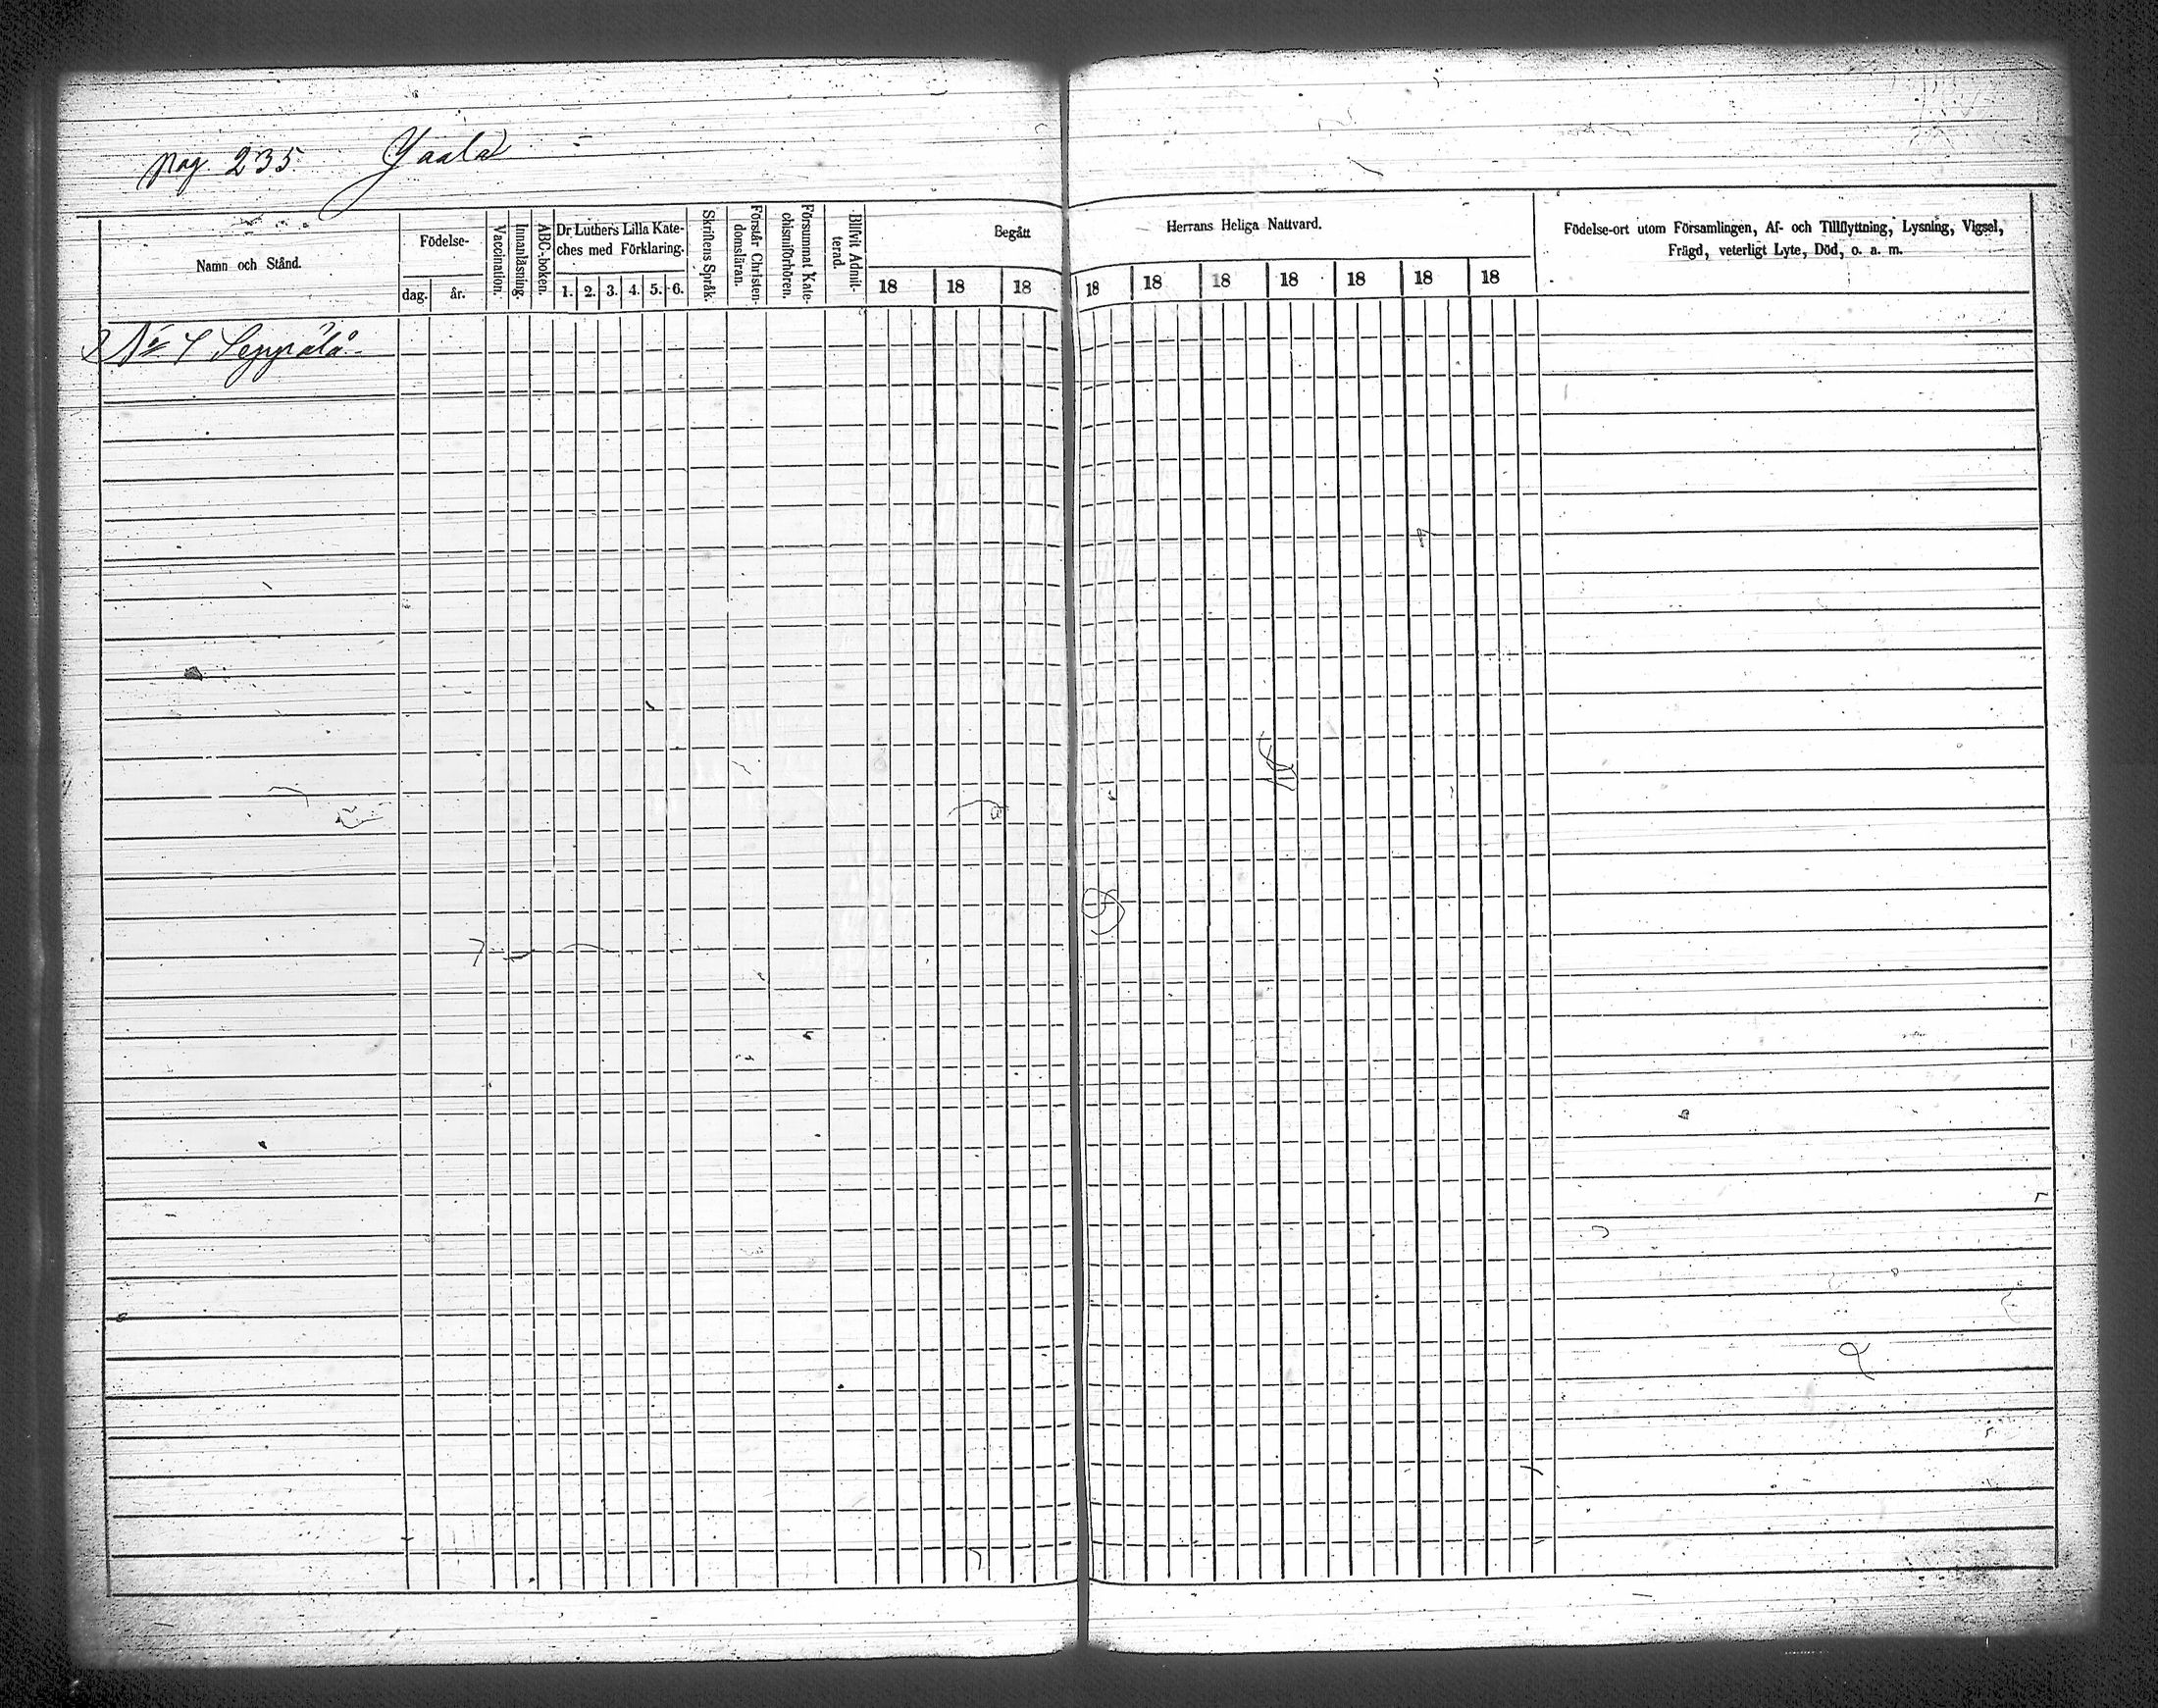 pag 235. Yaala
Namn och Stånd.
Födelse-
dag. år.
Vaccination.
Innanläsning.
ABC-boken.
Dr Luthers Lilla Kate-
ches med Förklaring.
1. 2. 3. 4. 5. 6.
Skriftens Språk.
Förstår Christen-
domsläran.
Försummat Kate-
chismiförhören.
Blifvit Admit-
terad.
Begått Herrans Heliga Nattvard.
18 18 18 18 18 18 18 18 18 18
Födelse-ort utom Församlingen, Af- och Tillflyttning, Lysning, Vigsel,
Frägd, veterligt Lyte, Död, o. a. m.
Seppälä